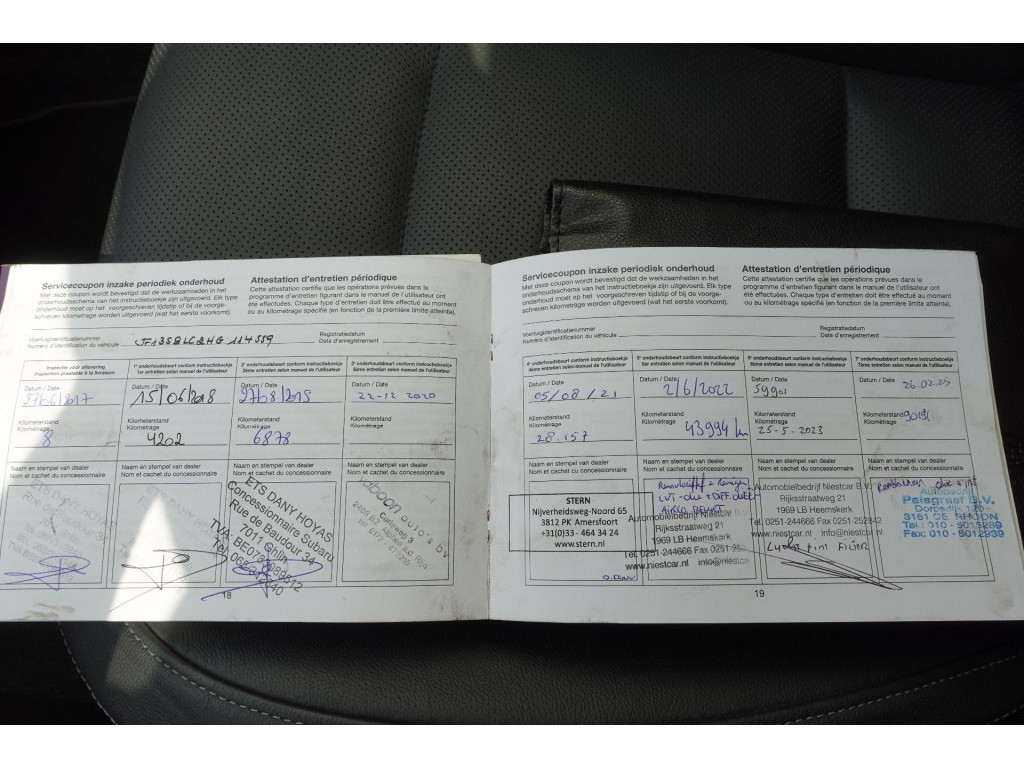 Servicecoupon inzake periodiek onderhoud
Met deze coupon wordt bevestigd dat de werkzaamheden in het
onderhoudsschema van het instructieboekje zijn uitgevoerd. Elk type
onderhoud moet op het voorgeschreven tijdstip of bij de voorge-
schreven kilometrage worden uitgevoerd (wat het eerste voorkomt).
Attestation d'entretien périodique
Cette attestation certifie que les opérations prévues dans le
programme d'entretien figurant dans le manuel de l'utilisateur ont
été effectuées. Chaque type d'entretien doit être effectué au moment
ou au kilométrage spécifié (en fonction de la première limite atteinte).
Voertuigidentificatienummer
Numéro d'identification du véhicule
Registratiedatum
Date d'enregistrement
Inspectie vóór aflevering
Inspection préalable à la livraison
1e onderhoudsbeurt conform instructieboekje
1er entretien selon manuel de l'utilisateur
2e onderhoudsbeurt conform instructieboekje
2ème entretien selon manuel de l'utilisateur
3e onderhoudsbeurt conform instructieboekje
3ème entretien selon manuel de l'utilisateur
Datum / Date
Datum / Date
15/06/2018
Datum / Date
Datum / Date
22-12 2020
Kilometerstand
Kilométrage
8
Kilometerstand
Kilométrage
4202
Kilometerstand
Kilométrage
6878
Kilometerstand
Kilométrage
Naam en stempel van dealer
Nom et cachet du concessionnaire
Naam en stempel van dealer
Nom et cachet du concessionnaire
Naam en stempel van dealer
Nom et cachet du concessionnaire
Naam en stempel van dealer
Nom et cachet du concessionnaire
ETS DANY HOYAS
ETS DANY HOYAS
Concessionnaire Subaru
Rue de Baudour 34
7011 Ghlin
18
Servicecoupon inzake periodiek onderhoud
Met deze coupon wordt bevestigd dat de werkzaamheden in het
onderhoudsschema van het instructieboekje zijn uitgevoerd. Elk type
onderhoud moet op het voorgeschreven tijdstip of bij de voorge-
schreven kilometrage worden uitgevoerd (wat het eerste voorkomt).
Attestation d'entretien périodique
Cette attestation certifie que les opérations prévues dans le
programme d'entretien figurant dans le manuel de l'utilisateur ont
été effectuées. Chaque type d'entretien doit être effectué au moment
ou au kilométrage spécifié (en fonction de la première limite atteinte).
Voertuigidentificatienummer
Numéro d'identification du véhicule
Registratiedatum
Date d'enregistrement
4e onderhoudsbeurt conform instructieboekje
4ème entretien selon manuel de l'utilisateur
5e onderhoudsbeurt conform instructieboekje
5ème entretien selon manuel de l'utilisateur
6e onderhoudsbeurt conform instructieboekje
6ème entretien selon manuel de l'utilisateur
7e onderhoudsbeurt conform instructieboekje
7ème entretien selon manuel de l'utilisateur
Datum / Date
05/08/21
Datum / Date
2/6/2022
Datum / Date
59901
Datum / Date
26.02.25
Kilometerstand
Kilométrage
28.157
Kilometerstand
Kilométrage
43994 km
Kilometerstand
Kilométrage
25-5-2023
Kilometerstand
Kilométrage
Naam en stempel van dealer
Nom et cachet du concessionnaire
Naam en stempel van dealer
Nom et cachet du concessionnaire
Naam en stempel van dealer
Nom et cachet du concessionnaire
Naam en stempel van dealer
Nom et cachet du concessionnaire
STERN
Nijverheidsweg-Noord 65
3812 PK Amersfoort
+31(0)33 - 464 34 24
www.stern.nl
Automobielbedrijf Niestcar
Rijksstraatweg 21
1969 LB Heemskerk
Tel. 0251-244666 Fax
www.niestcar.nl
Automobielbedrijf Niestcar B.V.
Rijksstraatweg 21
1969 LB Heemskerk
Tel. 0251-244666 Fax
www.niestcar.nl info@niestcar
Paisgraaf B.V.
Tel.: 010 - 5015289
Fax: 010 - 5012939
19